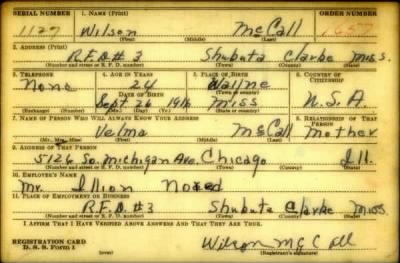 SERIAL NUMBER 1. NAME (Print) ORDER NUMBER
1127 Wilson McCall
(First) (Middle) (Last)
2. ADDRESS (Print)
R.F.D # 3 Shubuta Clarke Miss.
(Number and street or R. F. D. number) (Town) (County) (State)
3. TELEPHONE 4. AGE IN YEARS 5. PLACE OF BIRTH 6. COUNTRY OF CITIZENSHIP
None 24
DATE OF BIRTH (Town or county)
Sept. 26 1916 Miss U.S.A.
(Exchange) (Number) (Mo.) (Day) (Yr.) (State or country)
7. NAME OF PERSON WHO WILL ALWAYS KNOW YOUR ADDRESS 8. RELATIONSHIP OF THAT PERSON
Velma McCall Mother
(Mr., Mrs., Miss) (First) (Middle) (Last)
9. ADDRESS OF THAT PERSON
5126 So. Michigan Ave. Chicago Ill.
(Number and street or R. F. D. number) (Town) (County) (State)
10. EMPLOYER'S NAME
Mr.
11. PLACE OF EMPLOYMENT OR BUSINESS
R.F.D. #3 Shubuta Clarke Miss.
(Number and street or R. F. D. number) (Town) (County) (State)
I AFFIRM THAT I HAVE VERIFIED ABOVE ANSWERS AND THAT THEY ARE TRUE.
REGISTRATION CARD
D. S. S. Form 1 Wilson McCall
(Registrant's signature)